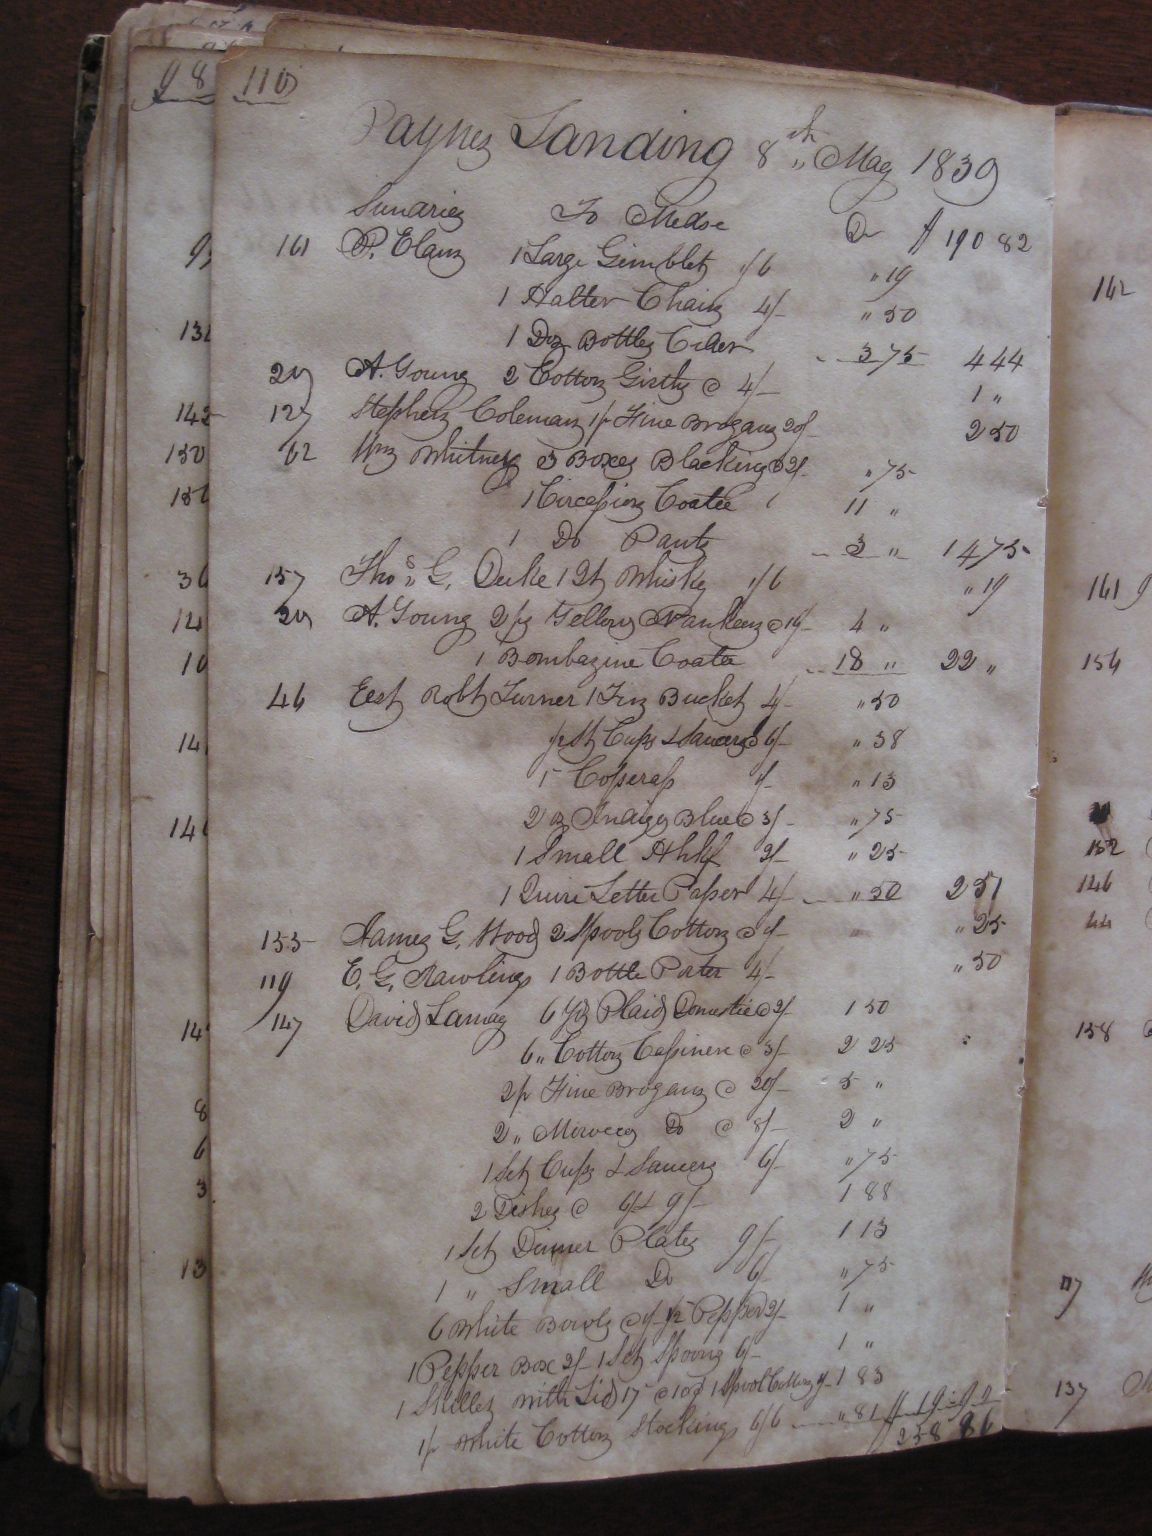 98
110
Paynes Landing 8th May 1839
Sundries To Mdse Dr $ 190 82
161 P. Elam 1 Large Gimblet 1/6 " 19
1 Halter Chain 4/- " 50
1 Doz Bottles Cider 3 75 4 44
29 A. Young 2 Cotton Girths @ 4/- 1 "
127 Stephen Coleman 1 pr Fine Brogans 20/- 2 50
62 Wm Whitney 3 Boxes Blacking @ 2/- " 75
1 Circassion Coatee 11 "
1 Do Pants 3 " 14 75
157 Thos G. Duke 1 Qt Whisky 1/6 " 19
29 A. Young 2 ps Yellow Nankeen @ 16/- 4 "
1 Bombazine Coatee 18 " 22 "
46 Est Robt Turner 1 Tin Bucket 4/- " 50
1/2 St Cups & Saucers @ 6/- " 38
Copperas 1/- " 13
2 oz Indigo Blue @ 3/- " 75
1 Small 2/- " 25
1 Quire Letter Paper 4/- " 50 2 51
155 James G. Wood 2 Spools Cotton @ 1/- " 25
119 E. G. Rawlings 1 Bottle Porter 4/- " 50
147 David Lamay 6 Yds Plaid Domestic @ 2/- 1 50
6 " Cotton Cassinere @ 3/- 2 25
2 pr Fine Brogans @ 20/- 5 "
2 " Morocco Do @ 8/- 2 "
1 Set Cups & Saucers 6/- " 75
2 Dishes @ 6/- & 9/- 1 88
1 Set Dinner Plates 9/- 1 13
1 " Small Do 6/- " 75
6 White Bowls @ 1/- Pepper 2/- 1 "
1 Pepper Box 2/- 1 Set Spoons 6/- 1 "
1 Skillet with Lid 17 @ 10d 1 Spool Cotton 1/- 1 83
1 pr White Cotton Stockings 6/6 " 81
258 86
142
161
154
152
146
44
158
117
137